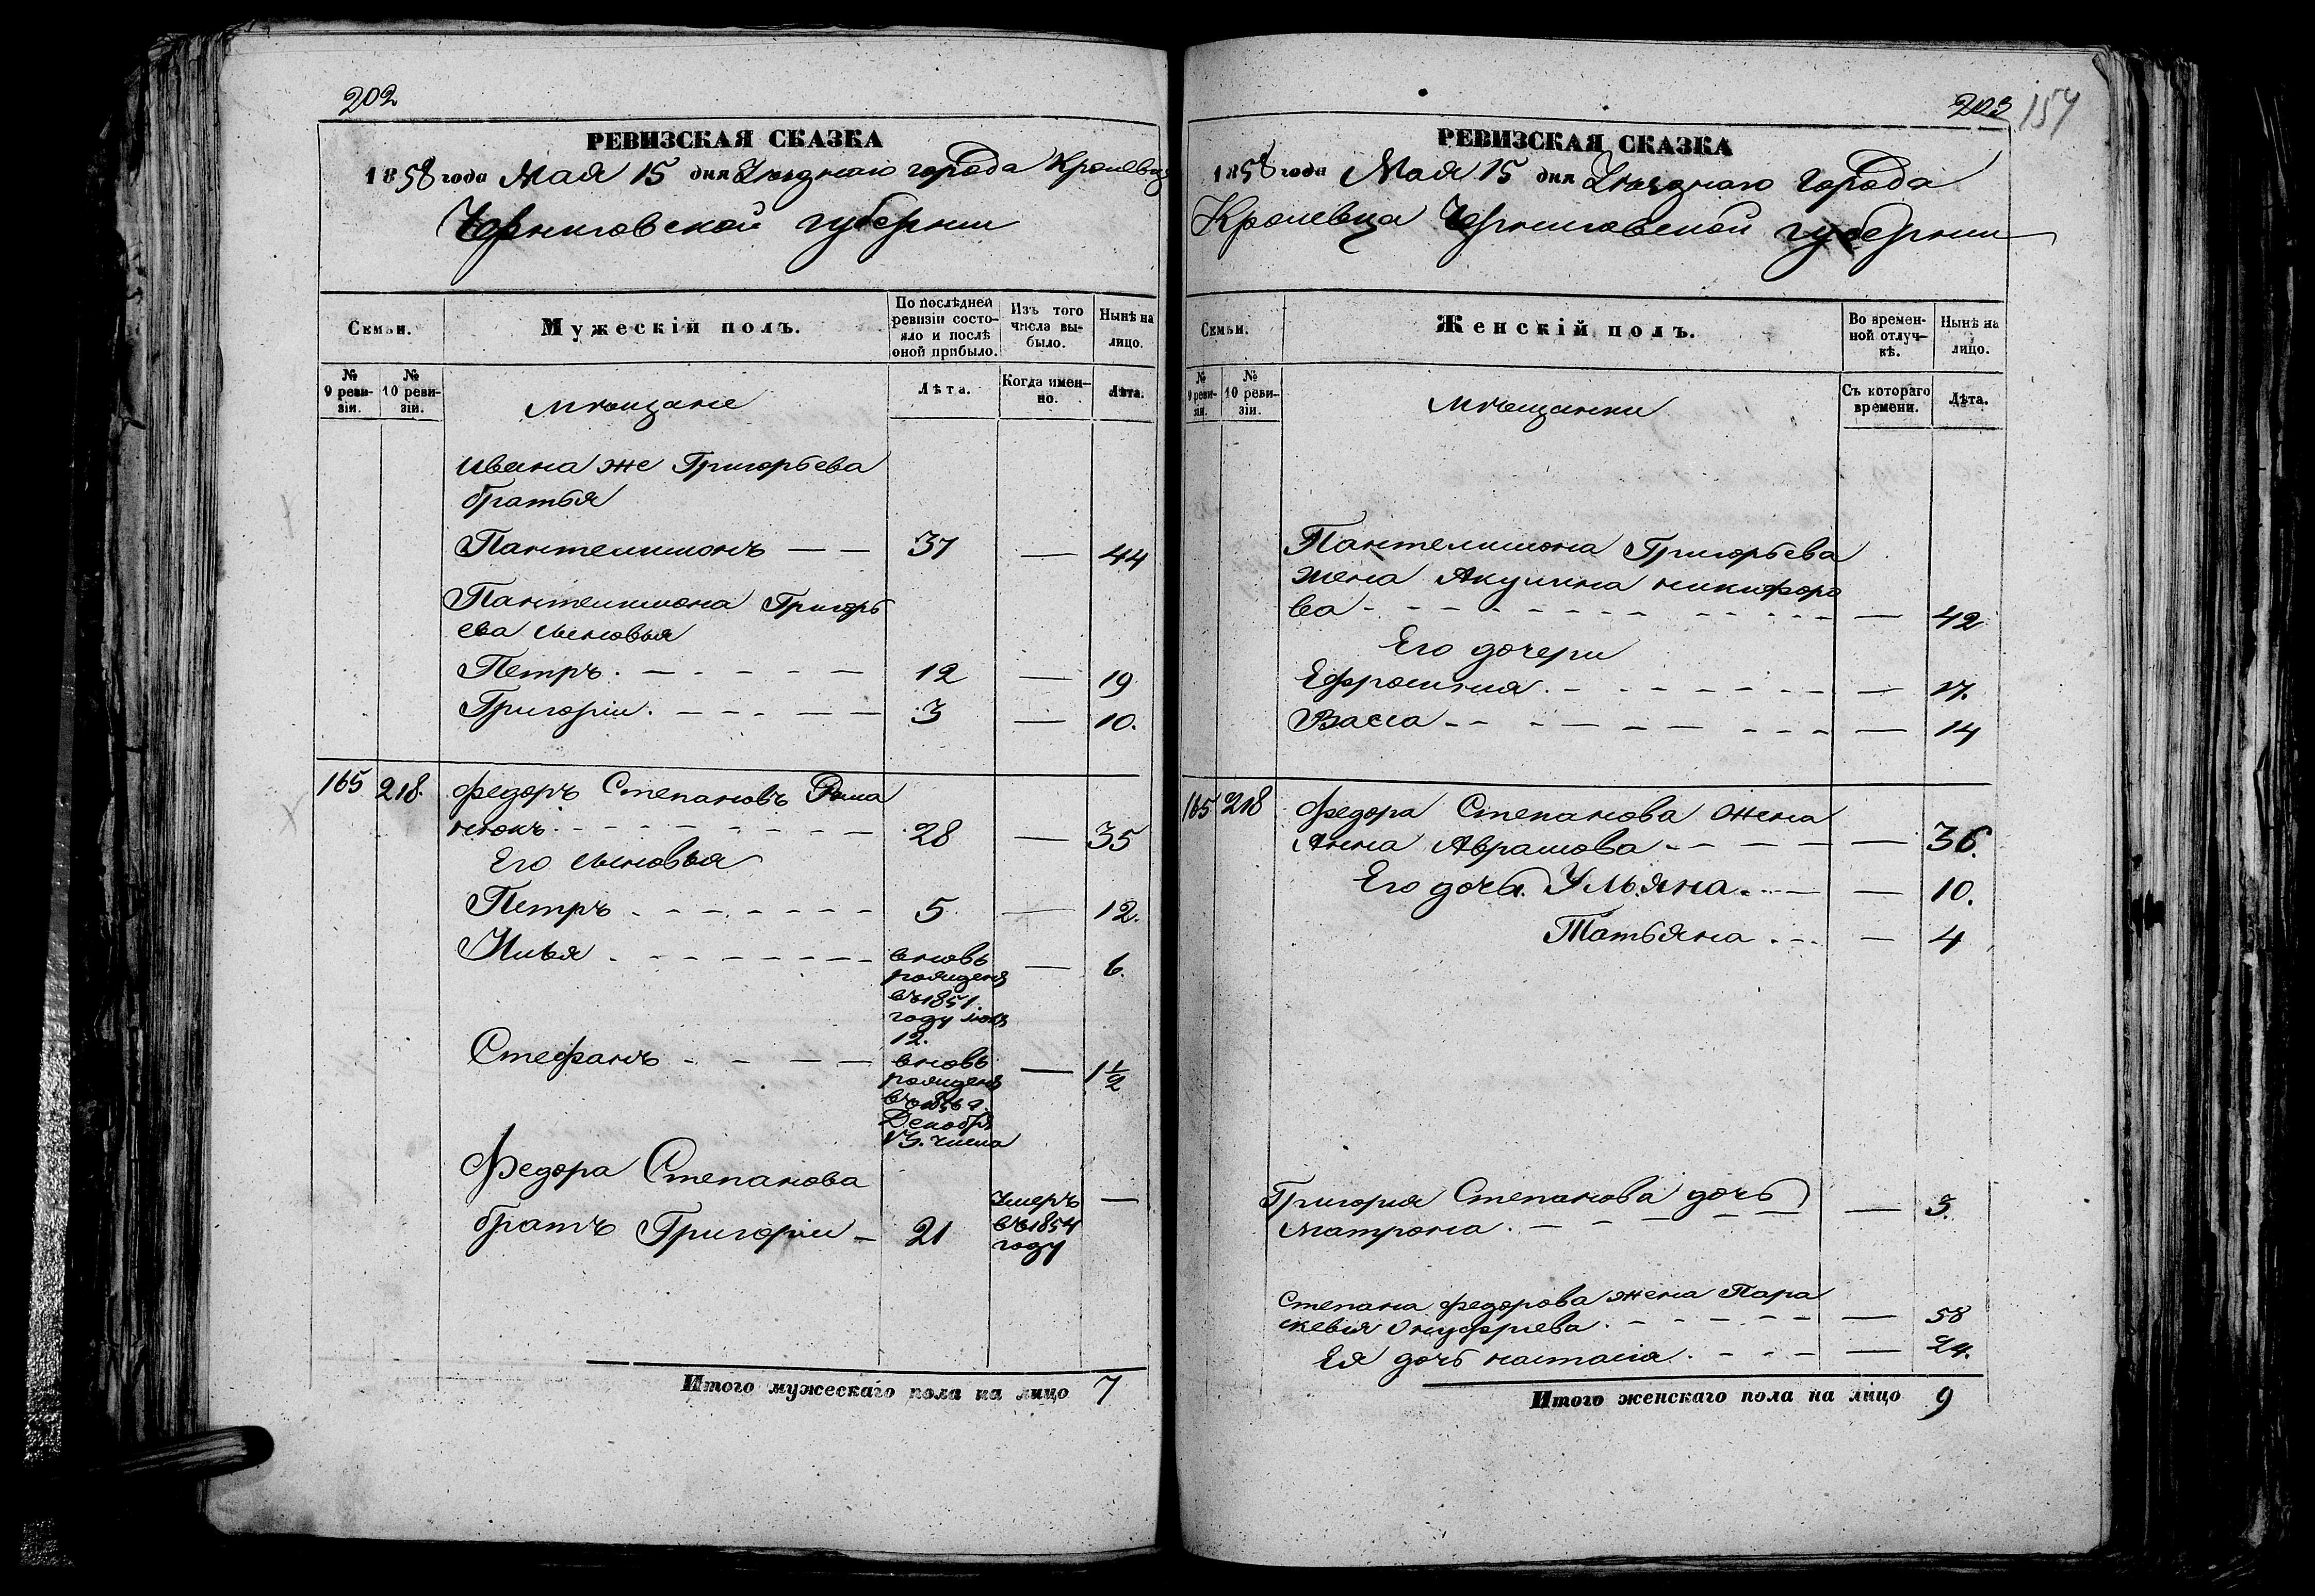 202
РЕВИЗСКАЯ СКАЗКА
1858 года Мая 15 дня Уѣзднаго города Кролевца
Черниговской губернии
Семьи.
Мужескій полъ.
По послѣдней ревизіи состояло и послѣ оной прибыло.
Изъ того числа выбыло.
Нынѣ на лицо.
№ 9 ревизіи.
№ 10 ревизіи.
мѣщане
Лѣта.
Когда именно.
Лѣта.
Ивана же Григорьева
братья
Пантелимонъ — — 37 — 44
Пантелимона Григорь
ева сыновья
Петръ . — . — — — 12 — 19
Григорій . — — — — — 3 — 10.
165 218. Федоръ Степановъ Рома
нюкъ . — — — — — — 28 — 35
Его сыновья
Петръ . — — — — — — 5. — 12.
Илья . — — — — — — вновь — 6.
рожденъ
въ 1851
году
12.
Стефанъ — — — — вновь — 1 1/2
рожденъ
въ 1856 г.
Декабря
13. числа
Федора Степанова
братъ Григорій — 21 умеръ —
въ 1854
году
Итого мужескаго пола на лицо 7
203 154
РЕВИЗСКАЯ СКАЗКА
1858 года Мая 15 дня Уѣзднаго города
Кролевца Черниговской губернии
Семьи.
Женскій полъ.
Во временной отлучкѣ.
Нынѣ на лицо.
№ 9 ревизіи.
№ 10 ревизіи.
мѣщанки
Съ котораго времени.
Лѣта.
Пантелимона Григорьева
жена Акулина никифоро
ва — — — — — — — — 42
Его дочери
Ефросиния . — — — — — — — 17.
Васса — — — — — — — — 14
165 218 Федора Степанова жена
Анна Аврамова — — — — — 36.
Его дочь. Ульяна . — — — 10.
Татьяна . — . — 4
Григория Степанова дочь
матрона . — — — — — — 3.
Степана федорова жена Пара
скевия Онуфриева . — — — — — 58
Ея дочь настасия . — — — — 24.
Итого женскаго пола на лицо 9